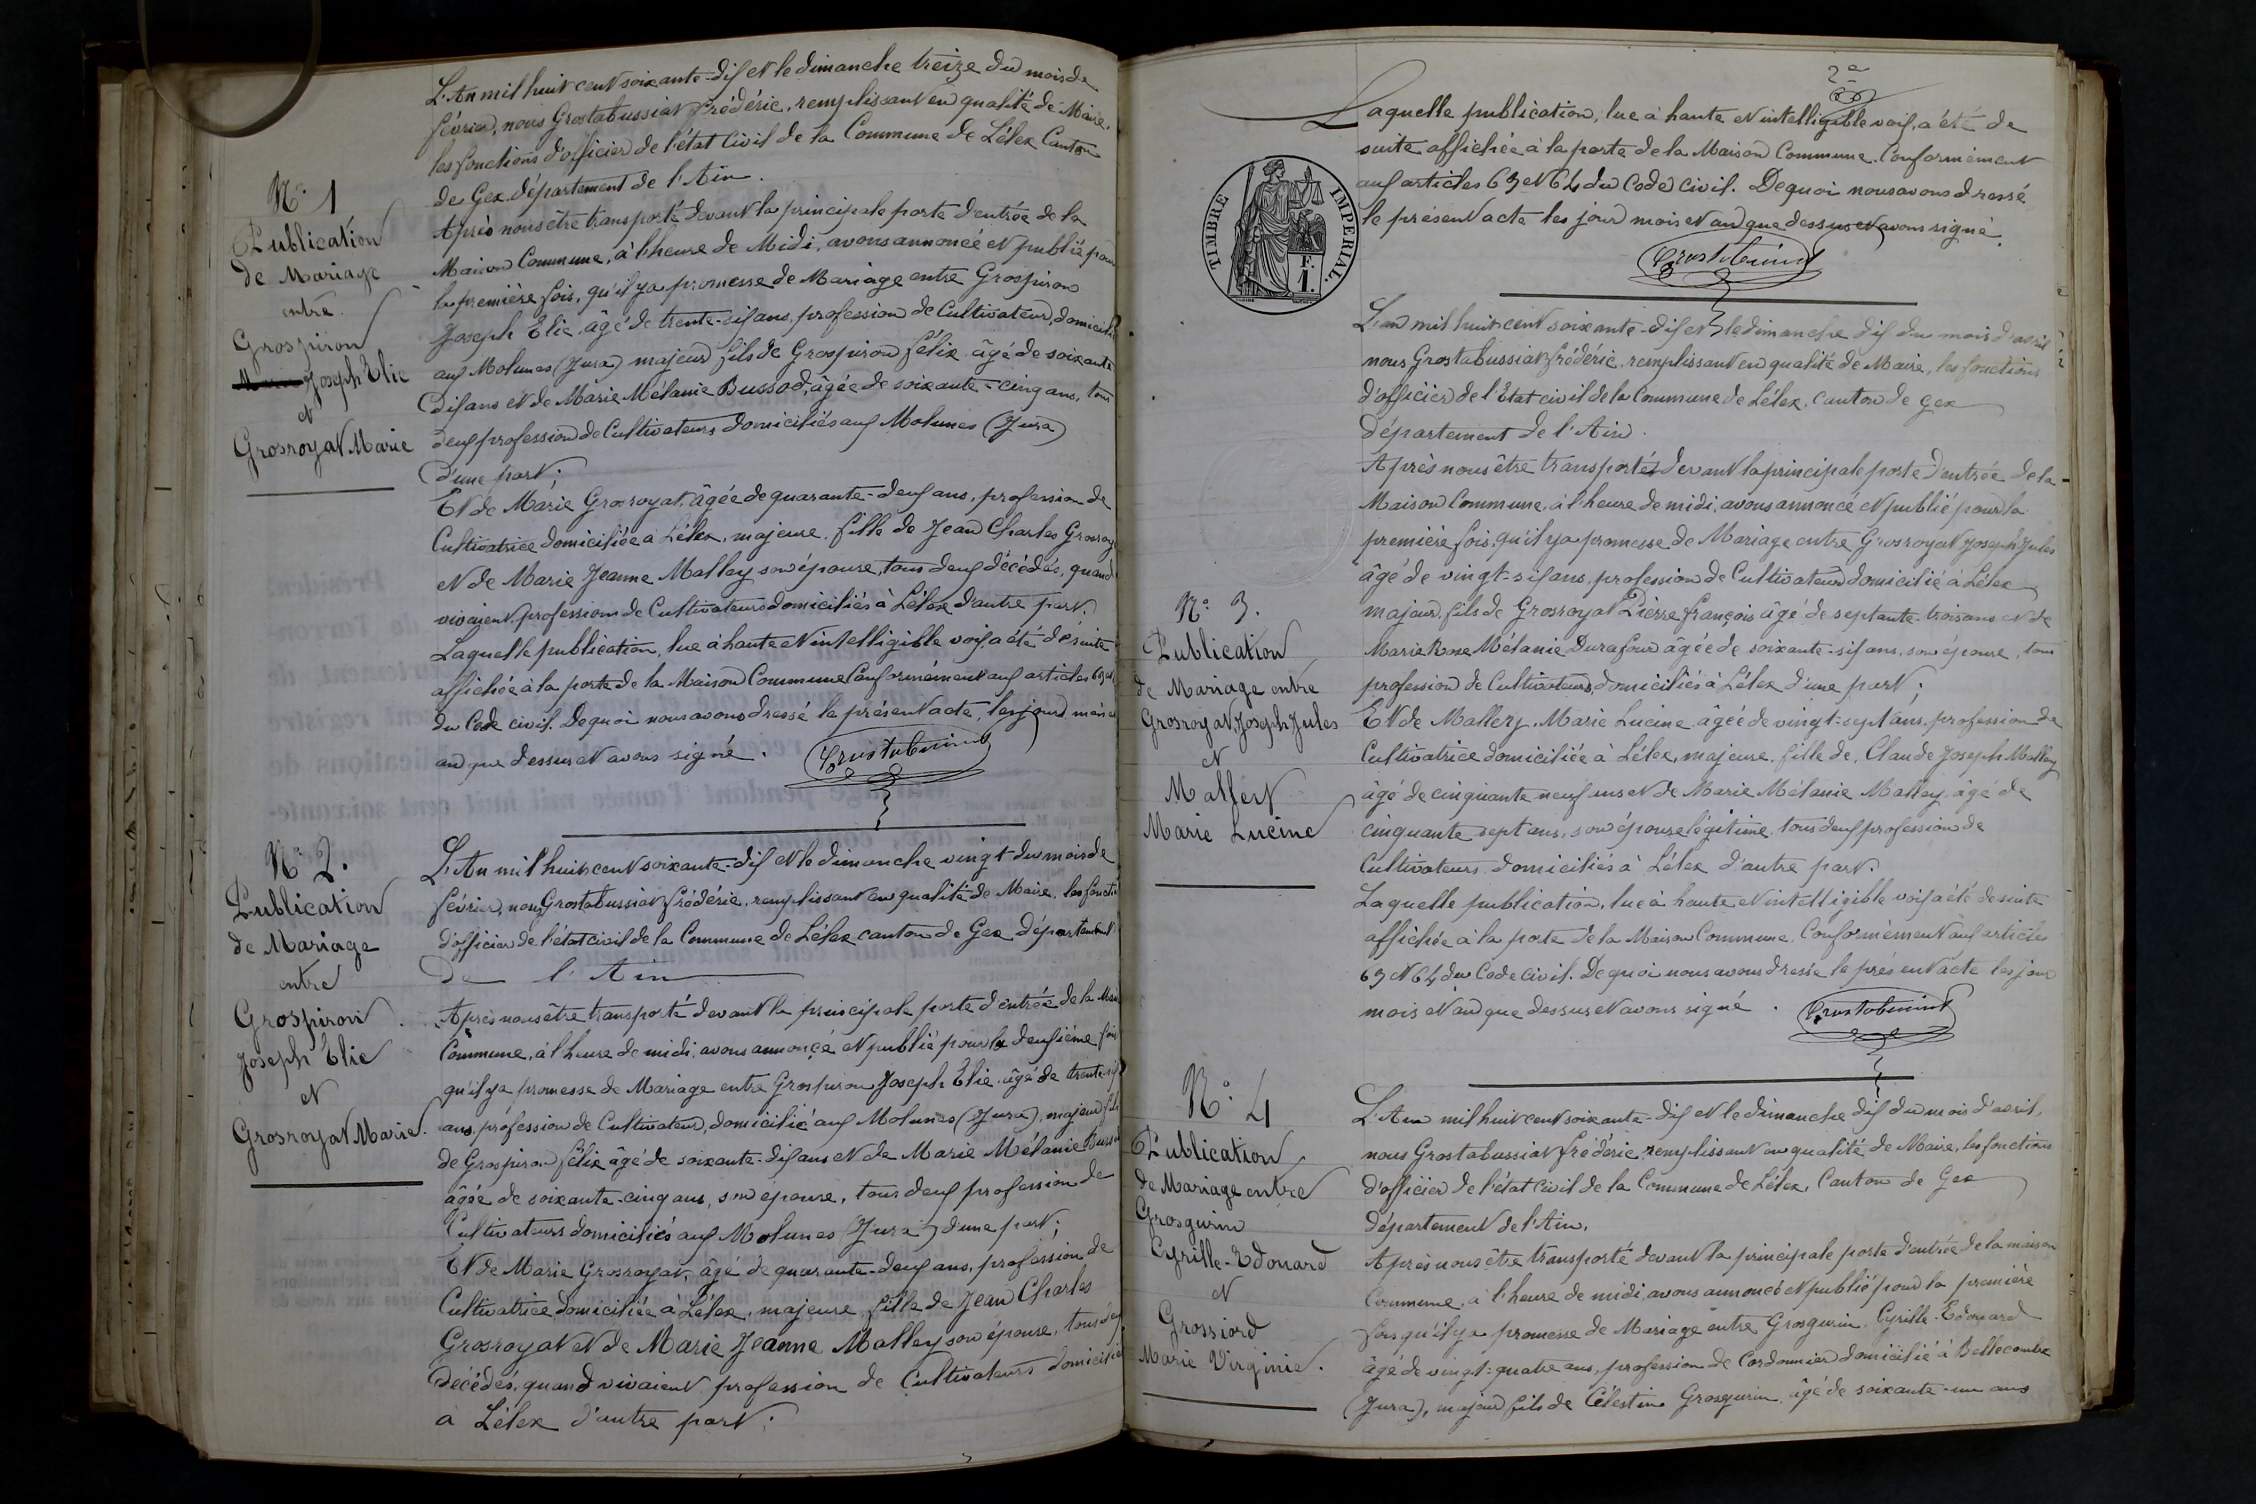 L'An mil huit cent soixante-dix et le dimanche treize du mois de
février, nous Grostabussiat frédéric, remplissant en qualité de Maire,
les fonctions d'officier de l'état civil de la Commune de Lélex Canton
de Gex, département de l'Ain.
N° 1
Publication
de Mariage
entre
Grospiron
Joseph Elie
et
Grosroyat Marie
Après nous être transporté devant la principale porte d'entrée de la
Maison Commune, à l'heure de Midi, avons annoncé et publié pour
la première fois, qu'il y a promesse de Mariage entre Grospiron
Joseph Elie, âgé de trente-six ans, profession de Cultivateur, domicilié
aux Molunes (Jura) majeur fils de Grospiron félix âgé de soixante
dix ans et de Marie Mélanie Bussod, âgée de soixante-cinq ans, tous
deux profession de Cultivateurs domiciliés aux Molunes (Jura)
d'une part;
Et de Marie Grosroyat, âgée de quarante-deux ans, profession de
Cultivatrice domiciliée à Lélex, majeure, fille de Jean Charles Grosroy
et de Marie Jeanne Malley son épouse, tous deux décédés, quand
vivaient profession de Cultivateurs domiciliés à Lélex d'autre part.
Laquelle publication, lue à haute et intelligible voix, a été de suite
affichée à la porte de la Maison Commune Conformément aux articles 63 et
du Code civil. Dequoi nous avons dressé le présent acte, les jour, mois et
an que dessus et avons signé.
N° 2.
Publication
de Mariage
entre
Grospiron
Joseph Elie
et
Grosroyat Marie.
L'An mil huit cent soixante-dix et le dimanche vingt du mois de
février, nous Grostabussiat frédéric, remplissant en qualité de Maire, les foncti
d'officier de l'état civil de la Commune de Lélex canton de Gex Département
de l'Ain
Après nous être transporté devant la principale porte d'entrée de la Mais
Commune, à l'heure de midi, avons annoncé et publié pour la deuxième fois
qu'il y a promesse de Mariage entre Grospiron Joseph Elie, âgé de trente-six
ans, profession de Cultivateur, domicilié aux Molunes (Jura), majeur fils
de Grospiron félix âgé de soixante-dix ans et de Marie Mélanie Bussod
âgée de soixante-cinq ans, son épouse, tous deux profession de
Cultivateurs domiciliés aux Molunes (Jura) d'une part;
Et de Marie Grosroyat, âgé de quarante-deux ans, profession de
Cultivatrice domiciliée à Lélex, majeure, fille de Jean Charles
Grosroyat et de Marie Jeanne Malley son épouse, tous deux
Décédés, quand vivaient profession de Cultivateurs domiciliés
a Lélex d'autre part.
2e
Laquelle publication, lue à haute et intelligible voix, a été de
suite affichée à la porte de la Maison Commune. Conformément
aux articles 63 et 64 du Code civil. Dequoi nous avons dressé
le présent acte les jour mois et an que dessus et avons signé.
TIMBRE IMPERIAL.
F.
1.
L'an mil huit cent soixante-dix et le dimanche dix du mois d'avril
nous Grostabussiat frédéric, remplissant en qualité de Maire, les fonctions
d'officier de l'Etat civil de la Commune de Lélex, canton de Gex
département de l'Ain.
Après nous être transporté devant la principale porte d'entrée de la
Maison Commune, à l'heure de midi, avons annoncé et publié pour la
première fois, qu'il y a promesse de Mariage entre Grosroyat Joseph Jules
âgé de vingt-six ans, profession de Cultivateur domicilié à Lélex
majeur, fils de Grosroyat Pierre françois âgé de septante-trois ans et de
Marie Rose Mélanie Durafour âgée de soixante-six ans, son épouse, tous
profession de Cultivateurs, domiciliés à Lélex d'une part;
N° 3.
Publication
de Mariage entre
Grosroyat Joseph Jules
et
Mallet
Marie Lucine
Et de Malley, Marie Lucine âgée de vingt-sept ans, profession de
Cultivatrice domiciliée à Lélex, majeure, fille de, Claude Joseph Malley
âgé de cinquante neuf ans et de Marie Mélanie Malley, âgé de
cinquante sept ans, son épouse légitime, tous deux profession de
Cultivateurs domiciliés à Lélex d'autre part.
Laquelle publication, lue à haute et intelligible voix a été de suite
affichée à la porte de la Maison Commune, Conformément aux articles
63 et 64 du Code civil. Dequoi nous avons dressé le présent acte les jour
mois et an que dessus et avons signé.
N° 4
Publication
de Mariage entre
Grosgurin
Cyrille-Edouard
et
Grossiord
Marie Virginie.
L'An mil huit cent soixante-dix et le dimanche dix du mois d'avril,
nous Grostabussiat frédéric, remplissant en qualité de Maire, les fonctions
d'officier de l'état civil de la Commune de Lélex, Canton de Gex
département de l'Ain,
Après nous être transporté devant la principale porte d'entrée de la maison
Commune, à l'heure de midi, avons annoncé et publié pour la première
fois qu'il y a promesse de Mariage entre Grosgurin, Cyrille-Edouard
âgé de vingt-quatre ans, profession de Cordonnier domicilié à Bellecombe
(Jura), majeur fils de Célestin Grosgurin, âgé de soixante-un ans